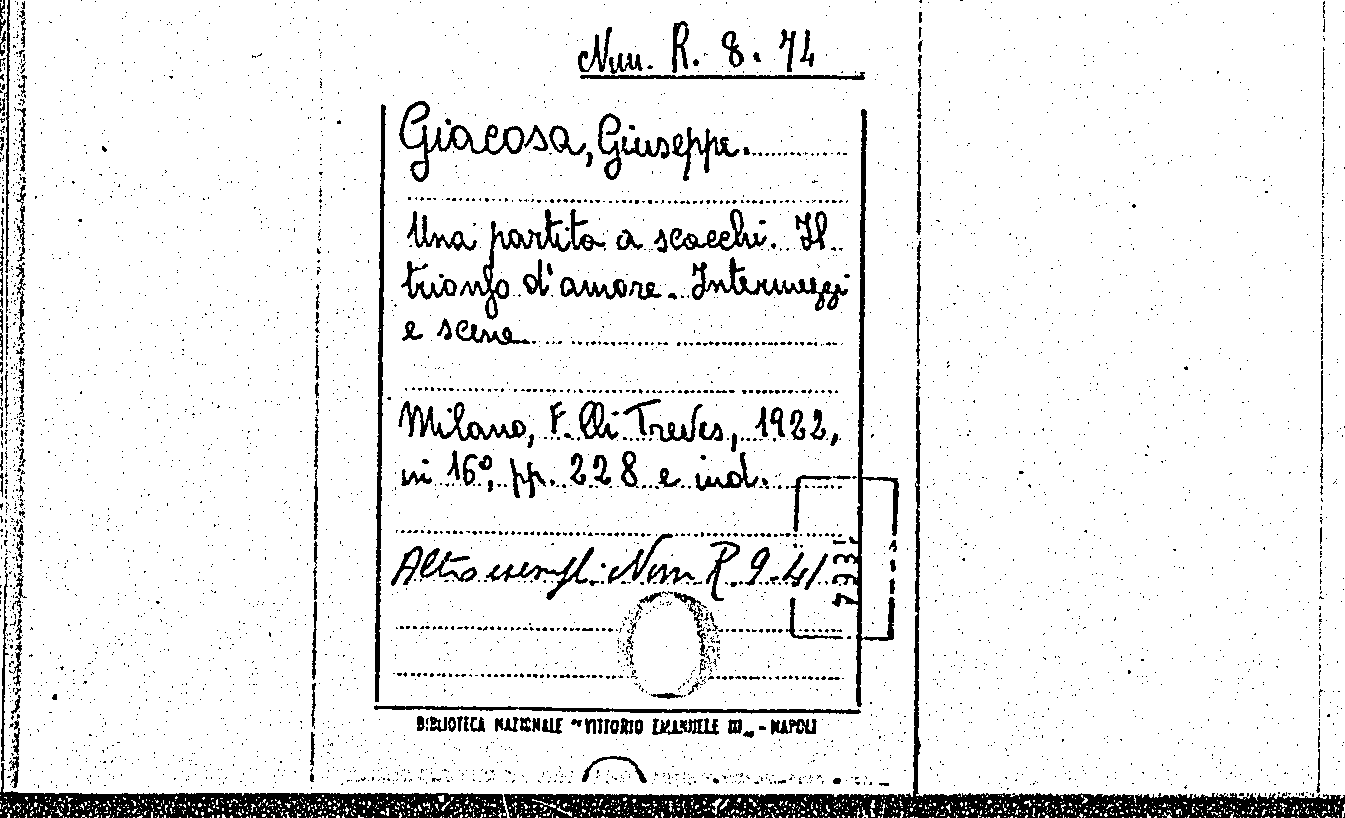 Nun. R. 8. 74
Giacosa, Giuseppe.
Una partita a scacchi. Il
trionfo d'amore. Intermezzi
e scene.
Milano, F.lli Treves, 1922,
in 16°, pp. 228 e ind.
Altro esempl. Nun R. 9. 41
BIBLIOTECA NAZIONALE "VITTORIO EMANUELE III„ - NAPOLI